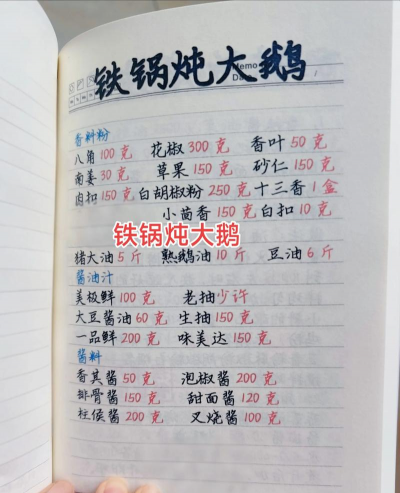 铁锅炖大鹅
Memo
香料粉
八角 100 克 花椒 300 克 香叶 50 克
南姜 30 克 草果 150 克 砂仁 150 克
肉扣 150 克 白胡椒粉 250 克 十三香 1 盒
小茴香 150 克 白扣 10 克
铁锅炖大鹅
猪大油 5 斤 熟鹅油 10 斤 豆油 6 斤
酱油汁
美极鲜 100 克 老抽少许
大豆酱油 60 克 生抽 150 克
一品鲜 200 克 味美达 150 克
酱料
香其酱 50 克 泡椒酱 200 克
排骨酱 150 克 甜面酱 120 克
柱侯酱 200 克 叉烧酱 100 克